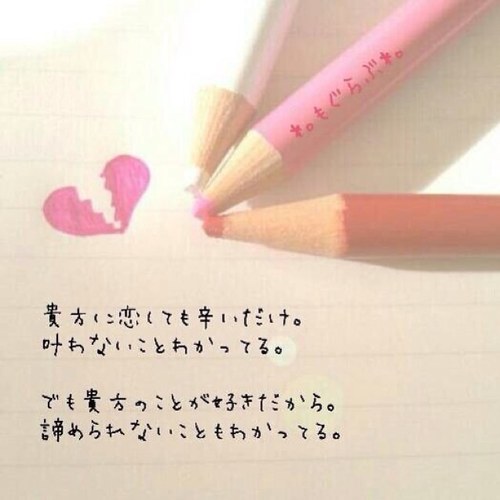 *。もぐらぶ*。
貴方に恋しても辛いだけ。
叶わないことわかってる。
でも貴方のことが好きだから。
諦められないこともわかってる。